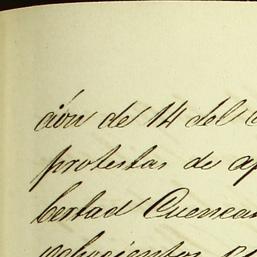 ción de 14 del
protestas de ap
bertad Cuencas